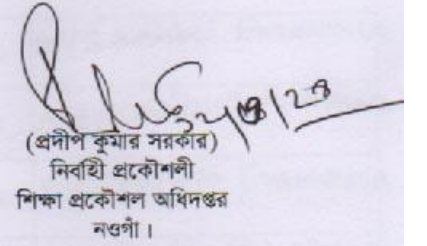 (প্রদীপ কুমার সরকার)
নির্বাহী প্রকৌশলী
শিক্ষা প্রকৌশল অধিদপ্তর
নওগাঁ।